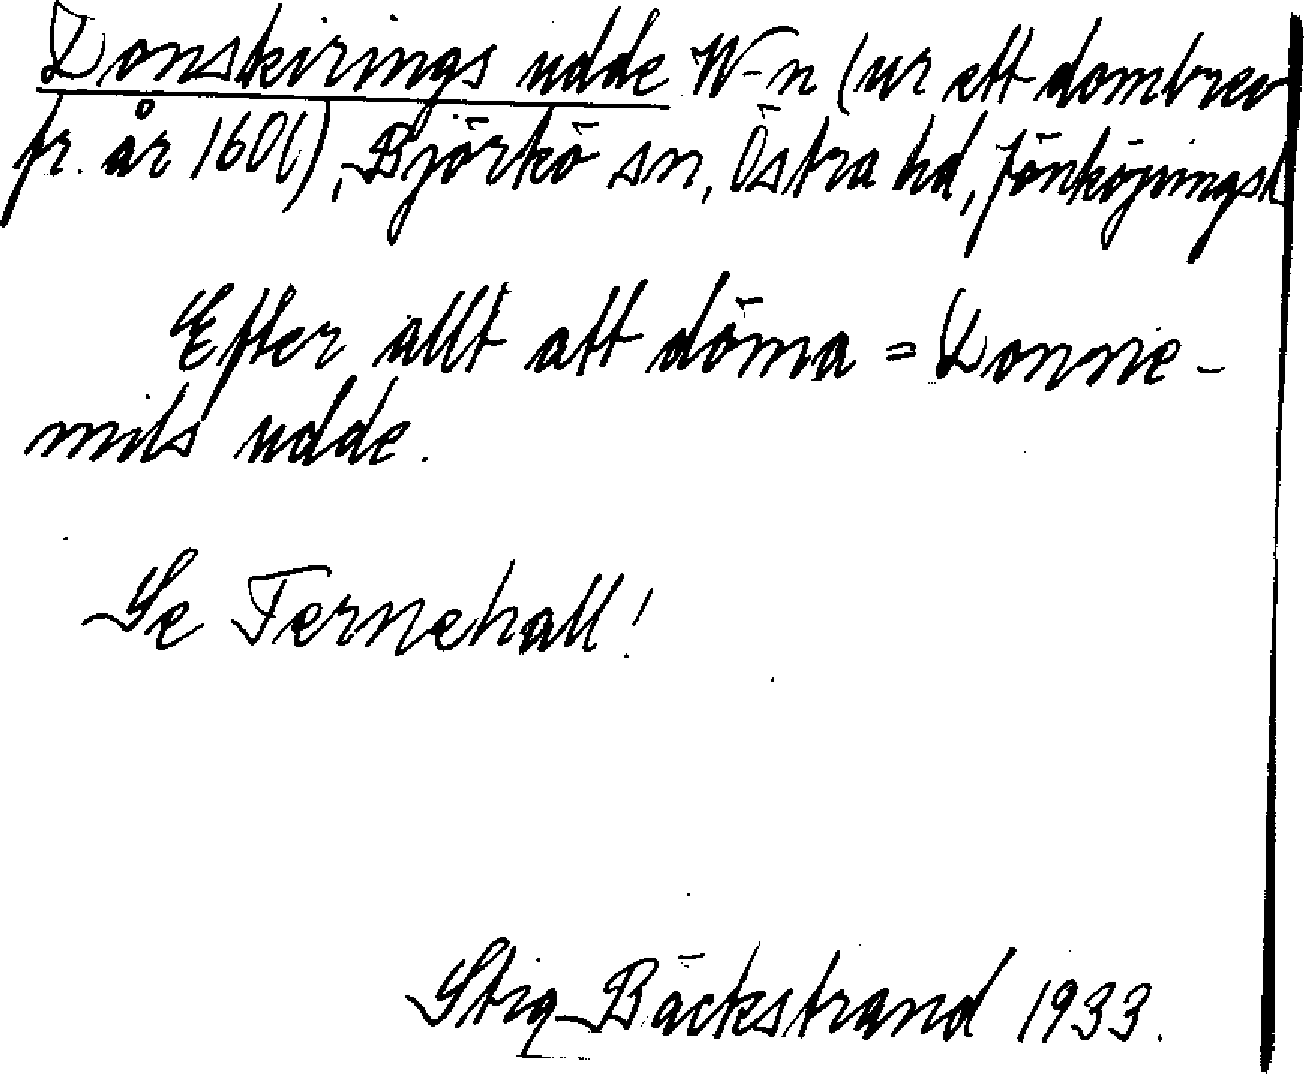 Donskirings udde W-n (ur ett dombrev
fr. år 1606), Björkö sn, Östra hd, Jönköpingsl
Efter allt att döma = Donnie-
mils udde.
Se Fernehall!
Stig Bäckstrand 1933.